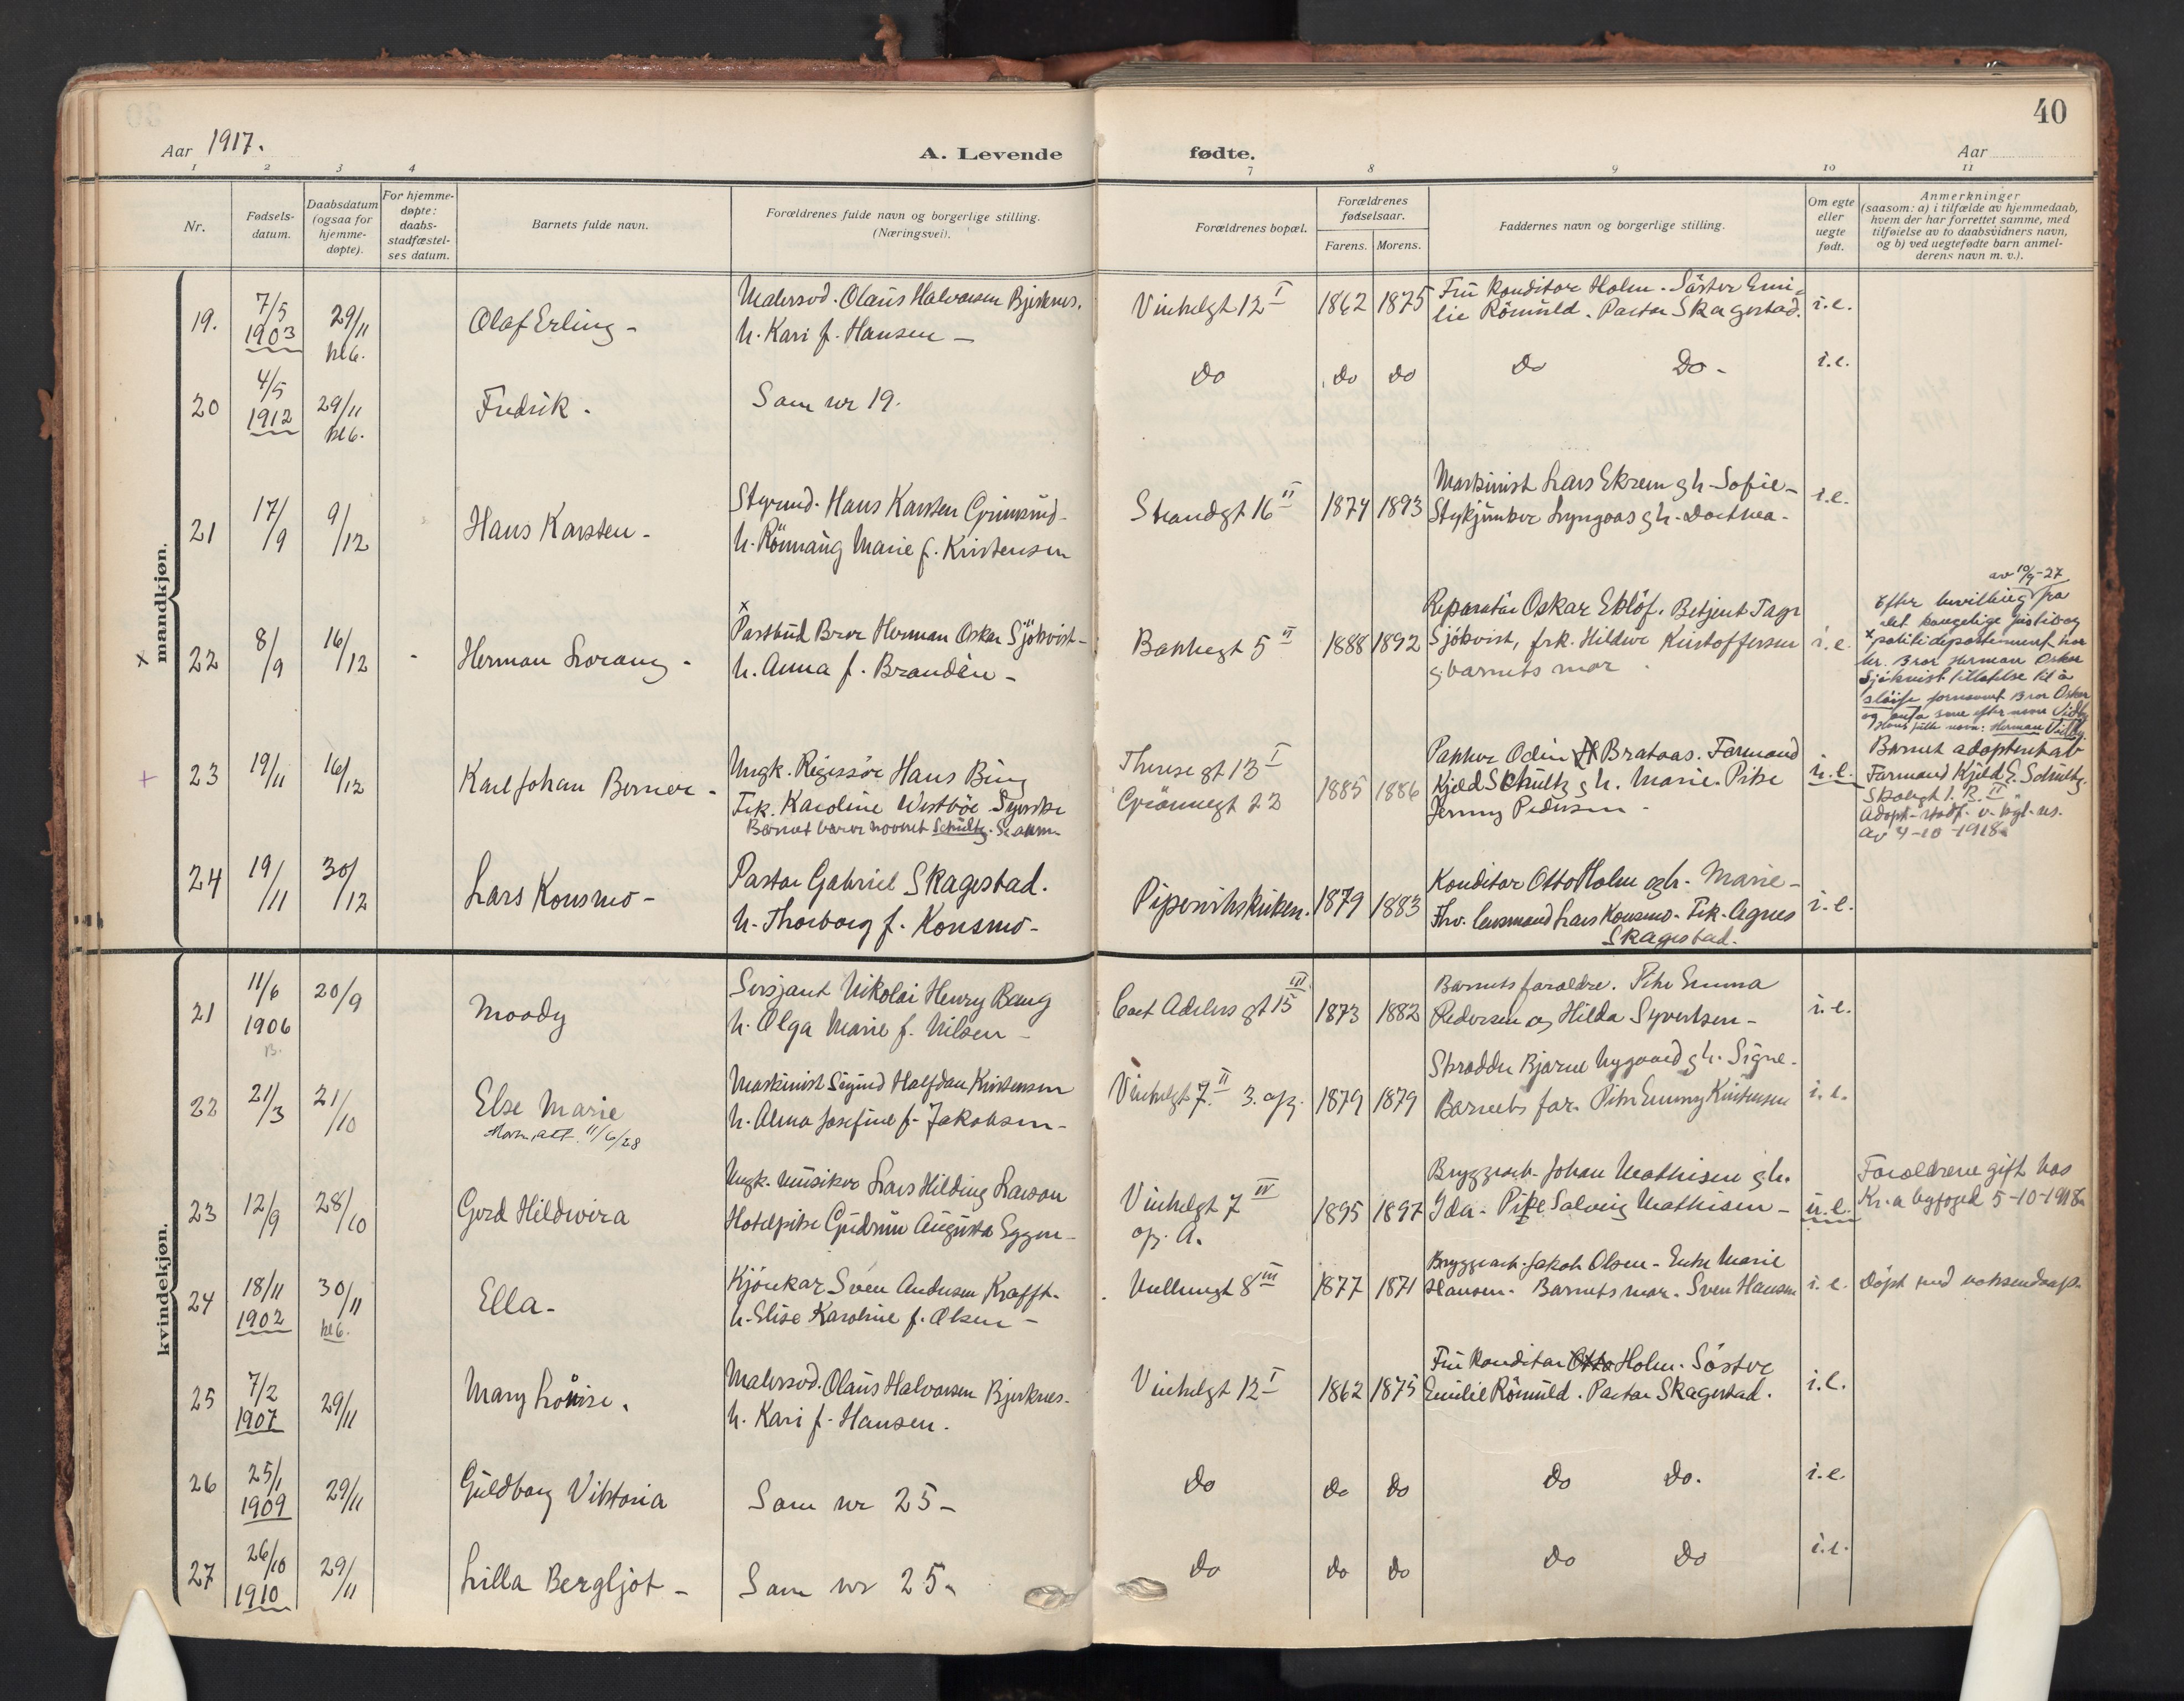 40
Aar 1917.
A. Levende fødte.
Aar
1 2 3 4 7 8 9 10 11
Nr.
Fødsels-
datum.
Daabsdatum
(ogsaa for
hjemme-
døpte).
For hjemme-
døpte:
daabs-
stadfæstel-
ses datum.
Barnets fulde navn.
Forældrenes fulde navn og borgerlige stilling.
(Næringsvei).
Forældrenes bopæl.
Forældrenes
fødselsaar.
Farens. Morens.
Faddernes navn og borgerlige stilling.
Om egte
eller
uegte
født.
Anmerkninger
(saasom: a) i tilfælde av hjemmedaab,
hvem der har forrettet samme, med
tilføielse av to daabsvidners navn,
og b) ved uegtefødte barn anmel-
derens navn m. v.).
mandkjøn.
19. 7/5 1903 29/11 kl 6. Olaf Erling -
Malersvd. Olaus Halvorsen Bjerknes.
h. Kari f. Hansen -
Vinkelgt 12 I 1862 1875
Fru Konditor Holm. Söster Emi-
lie Römuld. Pastor Skagestad. i.e.
20 4/5 1912 29/11 kl 6. Fredrik. Sam nr 19.
Do Do Do Do Do - i.e.
21 17/9 9/12 Hans Karsten -
Styrmd. Hans Karsten Grimsrud -
h. Rönnaug Marie f. Kristensen
Strandgt 16 II 1874 1893
Maskinist Lars Ekrem g h. Sofie -
Stykjunker Lyngaas g h. Dorthea - i.e.
x 22 8/9 16/12 Herman Lorang -
x Postbud Bror Herman Oskar Sjökvist -
h. Anna f. Brandén -
Bakkegt 5 II 1888 1892
Reparatör Oskar Eklöf. Betjent Tage
Sjökvist, frk. Hildur Kristoffersen
g barnets mor i.e.
av 10/9-27
Efter bevilling fra
det kongelige justis og
x politidepartement har
hr. Bror Herman Oskar
Sjökvist tillatelse til å
sløife fornavnet Bror Oskar
og anta som efternavn
Hans fulle navn: Herman
+ 23 19/11 16/12 Karl Johan Berner -
Ungk. Regissör Hans Bing
Frk. Karoline Westböe Syerske
Barnet bærer navnet Schultz. Se anm.
Therese gt 13 I
Grönnegt 22 1885 1886
Pakker Odin Brataas. Formand
Kjeld Schultz g h. Marie. Pike
Jenny Pedersen - u.e.
Barnet adoptert av
Formand Kjeld E. Schultz.
Skovgt 1. R. II
Adopt. stadf. v. kgl. res.
av 4-10-1918
24 19/11 30/12 Lars Konsmo -
Pastor Gabriel Skagestad.
h. Thorborg f. Konsmo -
Pipervikskirken. 1879 1883
Konditor Otto Holm og h. Marie -
Fhv. lensmand Lars Konsmo - Frk. Agnes
Skagestad. i.e.
kvindekjøn.
21 11/6 1906 20/9 Moody
Sersjant Nikolai Henry Bang
h. Olga Marie f. Nilsen -
Cort Adelers gt 15 III 1873 1882
Barnets foræældre. Pike Emma
Pedersen og Hilda Syvertsen - i.e.
22 21/3 21/10 Else Marie
att. 11/6/28
Maskinist Sigurd Halfdan Kristensen
h. Alma Josefine f. Jakobsen -
Vinkelgt 7 II 3. opg. 1879 1879
Skrædder Bjarne Nygaard g h. Signe -
Barnets far. Pike Emmy Kristensen i.e.
23 12/9 28/10 Gerd Hildwira
Ungk. Musiker Lars Hilding Larson
Hotelpike Gudrun Augusta Eggen -
Vinkelgt 7 IV
op. A. 1895 1897
Bryggearb. Johan Mathisen g h.
Ida - Pike Solveig Mathisen - u.e.
Forældrene gift hos
Kr.a byfoged 5-10-1918
24 18/11 1902 30/11 kl 6. Ella -
Kjörekar Sven Andersen Krafft -
h. Elise Karoline f. Olsen -
Vullumgt 8 III 1877 1871
Bryggearb. Jakob Olsen - Enke Marie
Hansen - Barnets mor - Sven Hansen i.e. Döpt med voksendaap.
25 7/2 1907 29/11 Mary Lovise.
Malersvd. Olaus Halvorsen Bjerknes -
h. Kari f. Hansen.
Vinkelgt 12 I 1862 1875
Fru Konditor Otto Holm. Söster
Emilie Römuld. Pastor Skagestad. i.e.
26 25/1 1909 29/11 Guldborg Viktoria Sam nr 25 -
Do Do Do Do Do. i.e.
27 26/10 1910 29/11 Lilla Bergljot - Sam nr 25 -
Do Do Do Do Do i.e.